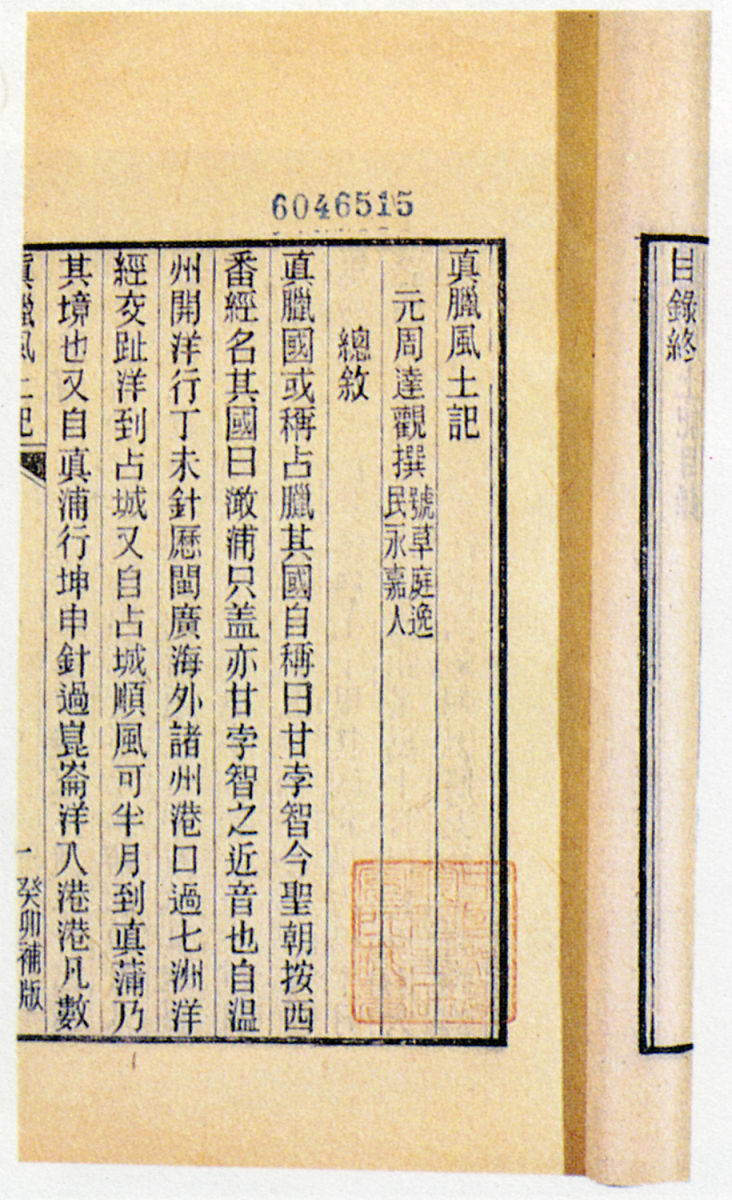 6046515
目錄終
真臘風土記
元周達觀撰
號草庭逸
民永嘉人
總敘
真臘國或稱占臘其國自稱曰甘孛智今聖朝按西
番經名其國曰澉浦只盖亦甘孛智之近音也自温
州開洋行丁未針厯閩廣海外諸州港口過七洲洋
經交趾洋到占城又自占城順風可半月到真蒲乃
其境也又自真浦行坤申針過崑崙洋入港港凡數
真臘風土記
一
癸卯補版